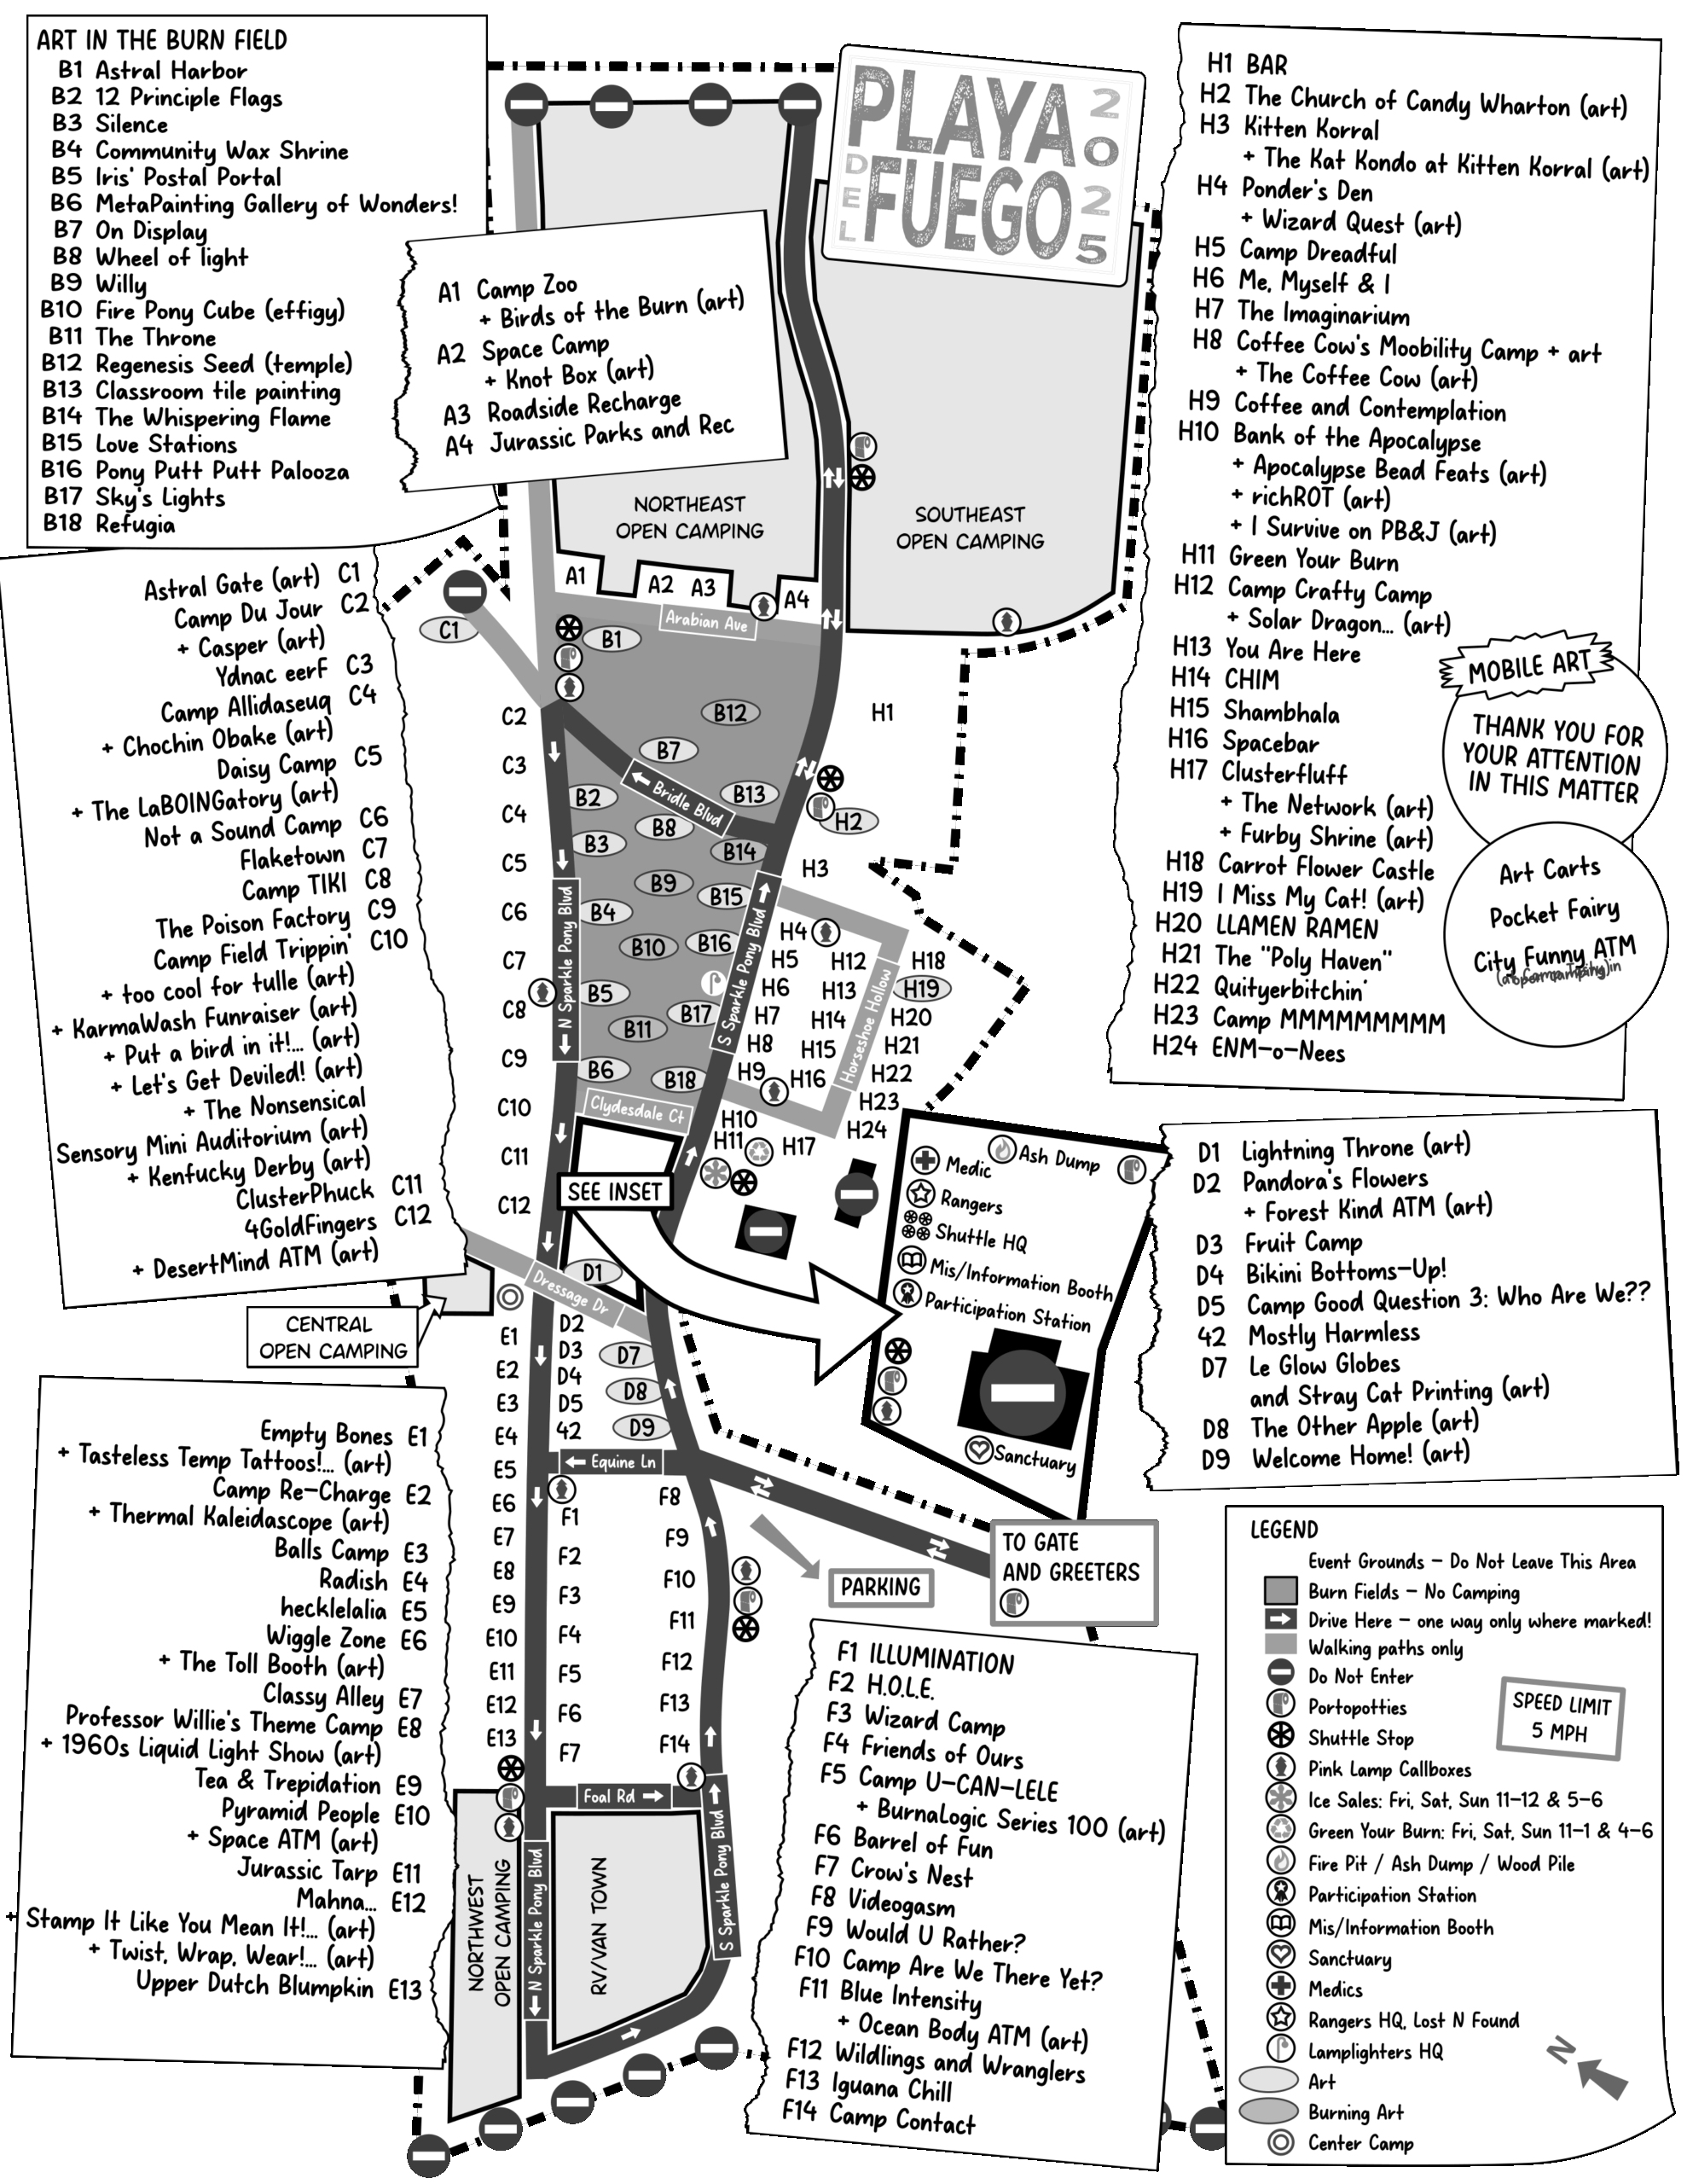 ART IN THE BURN FIELD
B1 Astral Harbor
B2 12 Principle Flags
B3 Silence
B4 Community Wax Shrine
B5 Iris' Postal Portal
B6 MetaPainting Gallery of Wonders!
B7 On Display
B8 Wheel of light
B9 Willy
B10 Fire Pony Cube (effigy)
B11 The Throne
B12 Regenesis Seed (temple)
B13 Classroom tile painting
B14 The Whispering Flame
B15 Love Stations
B16 Pony Putt Putt Palooza
B17 Sky's Lights
B18 Refugia
A1 Camp Zoo
+ Birds of the Burn (art)
A2 Space Camp
+ Knot Box (art)
A3 Roadside Recharge
A4 Jurassic Parks and Rec
PLAYA
DEL
FUEGO
2025
H1 BAR
H2 The Church of Candy Wharton (art)
H3 Kitten Korral
+ The Kat Kondo at Kitten Korral (art)
H4 Ponder's Den
+ Wizard Quest (art)
H5 Camp Dreadful
H6 Me, Myself & I
H7 The Imaginarium
H8 Coffee Cow's Moobility Camp + art
+ The Coffee Cow (art)
H9 Coffee and Contemplation
H10 Bank of the Apocalypse
+ Apocalypse Bead Feats (art)
+ richROT (art)
+ I Survive on PB&J (art)
H11 Green Your Burn
H12 Camp Crafty Camp
+ Solar Dragon... (art)
H13 You Are Here
H14 CHIM
H15 Shambhala
H16 Spacebar
H17 Clusterfluff
+ The Network (art)
+ Furby Shrine (art)
H18 Carrot Flower Castle
H19 I Miss My Cat! (art)
H20 LLAMEN RAMEN
H21 The "Poly Haven"
H22 Quityerbitchin'
H23 Camp MMMMMMMMM
H24 ENM-o-Nees
MOBILE ART
THANK YOU FOR
YOUR ATTENTION
IN THIS MATTER
Art Carts
Pocket Fairy
City Funny ATM
Astral Gate (art) C1
Camp Du Jour C2
+ Casper (art)
Ydnac eerF C3
Camp Allidaseuq C4
+ Chochin Obake (art)
Daisy Camp C5
+ The LaBOINGatory (art)
Not a Sound Camp C6
Flaketown C7
Camp TIKI C8
The Poison Factory C9
Camp Field Trippin' C10
+ too cool for tulle (art)
+ KarmaWash Funraiser (art)
+ Put a bird in it!... (art)
+ Let's Get Deviled! (art)
+ The Nonsensical
Sensory Mini Auditorium (art)
+ Kenfucky Derby (art)
ClusterPhuck C11
4GoldFingers C12
+ DesertMind ATM (art)
NORTHEAST
OPEN CAMPING
SOUTHEAST
OPEN CAMPING
A1
A2
A3
A4
Arabian Ave
C1
B1
B12
H1
C2
B7
C3
B2
Bridle Blvd
B13
C4
B8
H2
B3
B14
C5
H3
N Sparkle Pony Blvd
B9
B15
S Sparkle Pony Blvd
C6
B4
H4
B10
B16
C7
H5
H12
H18
B5
H6
H13
H19
Horseshoe Hollow
C8
B17
H7
H14
H20
B11
H8
H15
H21
C9
B6
B18
H9
H16
H22
H23
C10
Clydesdale Ct
H10
H24
H11
H17
C11
SEE INSET
C12
D1
Dressage Dr
CENTRAL
OPEN CAMPING
Medic
Ash Dump
Rangers
Shuttle HQ
Mis/Information Booth
Participation Station
Sanctuary
D1 Lightning Throne (art)
D2 Pandora's Flowers
+ Forest Kind ATM (art)
D3 Fruit Camp
D4 Bikini Bottoms-Up!
D5 Camp Good Question 3: Who Are We??
42 Mostly Harmless
D7 Le Glow Globes
and Stray Cat Printing (art)
D8 The Other Apple (art)
D9 Welcome Home! (art)
E1
D2
D3
D7
E2
D4
D8
E3
D5
E4
42
D9
E5
Equine Ln
E6
F8
F1
E7
F9
F2
E8
F10
E9
F3
F11
E10
F4
F12
E11
F5
E12
F6
F13
E13
F7
F14
Foal Rd
PARKING
TO GATE
AND GREETERS
Empty Bones E1
+ Tasteless Temp Tattoos!... (art)
Camp Re-Charge E2
+ Thermal Kaleidascope (art)
Balls Camp E3
Radish E4
hecklelalia E5
Wiggle Zone E6
+ The Toll Booth (art)
Classy Alley E7
Professor Willie's Theme Camp E8
+ 1960s Liquid Light Show (art)
Tea & Trepidation E9
Pyramid People E10
+ Space ATM (art)
Jurassic Tarp E11
Mahna... E12
+ Stamp It Like You Mean It!... (art)
+ Twist, Wrap, Wear!... (art)
Upper Dutch Blumpkin E13
NORTHWEST
OPEN CAMPING
N Sparkle Pony Blvd
RV/VAN TOWN
S Sparkle Pony Blvd
F1 ILLUMINATION
F2 H.O.L.E.
F3 Wizard Camp
F4 Friends of Ours
F5 Camp U-CAN-LELE
+ BurnaLogic Series 100 (art)
F6 Barrel of Fun
F7 Crow's Nest
F8 Videogasm
F9 Would U Rather?
F10 Camp Are We There Yet?
F11 Blue Intensity
+ Ocean Body ATM (art)
F12 Wildlings and Wranglers
F13 Iguana Chill
F14 Camp Contact
LEGEND
Event Grounds - Do Not Leave This Area
Burn Fields - No Camping
Drive Here - one way only where marked!
Walking paths only
Do Not Enter
Portopotties
Shuttle Stop
SPEED LIMIT
5 MPH
Pink Lamp Callboxes
Ice Sales: Fri, Sat, Sun 11-12 & 5-6
Green Your Burn: Fri, Sat, Sun 11-1 & 4-6
Fire Pit / Ash Dump / Wood Pile
Participation Station
Mis/Information Booth
Sanctuary
Medics
Rangers HQ, Lost N Found
Lamplighters HQ
Art
Burning Art
Center Camp
N